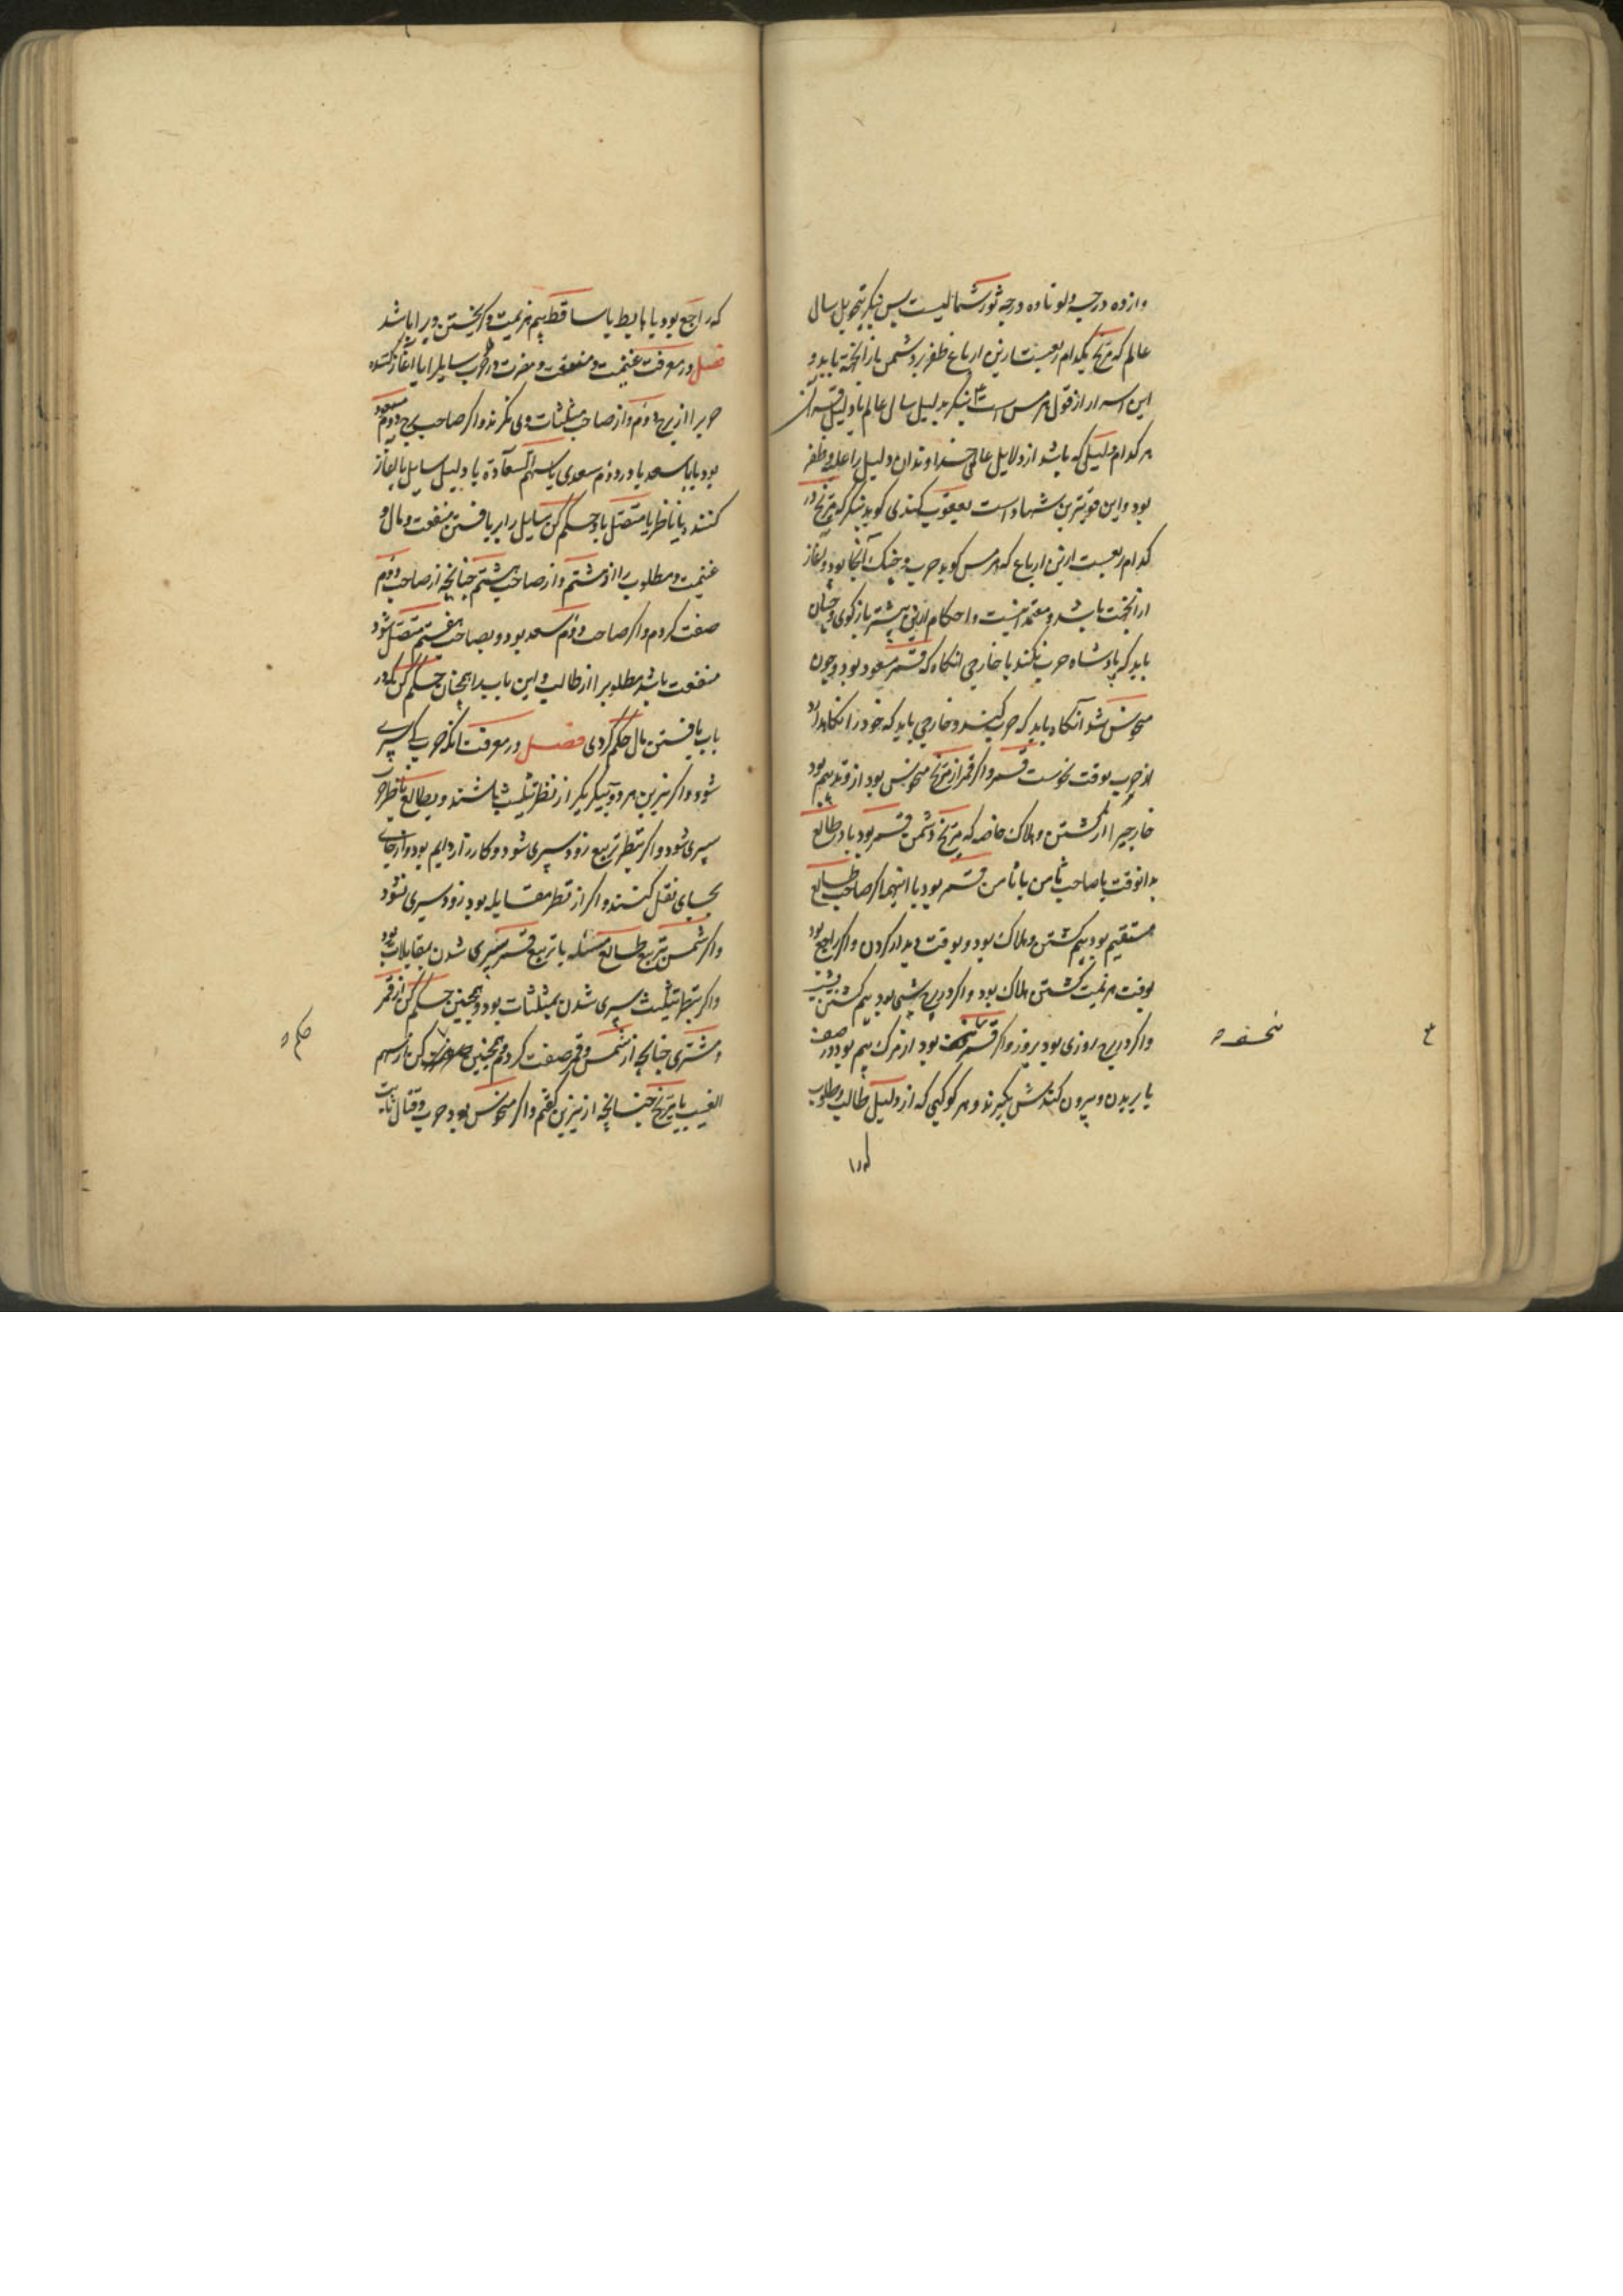 وازده درجه دلو تا ده درجه ثور شمالیست پس بنکر بتحویل سال
عالم که مریخ بکدام ربعیست ازین ارباع ظفر بر دشمن باز انجه باید و
این اسرار از قول هرمس است بنکر بدلیل سال عالم یا دلیل قران
هر کدام دلیلی که باشد از دلایل عالمی خداوند آن دلیل را غلبه و ظفر
بود و این قویترین شهاد است یعقوب کندی کوید بنکر که مریخ در
کدام ربعیست ازین ارباع که هرمس کوید حرب و جنک آنجا بود و آغاز
از آنجت باشد و معتمد اینست و احکام ازین پیشتر باز کوی و چنان
باید که پادشاه حرب نکند با خارجی انکاه که قمر مسعود بود و چون
منحوس شد آنکاه باید که حرب کنند و خارجی باید که خود را نکاهدارد
از حرب بوقت نحوست قمر و اکر قمر از مریخ منحوس بود از وتد بیم بود
خارجیرا از کشتن و هلاک خاصه که مریخ دشمن قمر بود یا در طالع
بدانوقت یا صاحب ثامن یا ثامن قمر بود یا اینهمه اکر صاحب طالع
مستقیم بود بیم کشتن و هلاک بود و بوقت دیدار کردن و اکر راجع بود
بوقت هزیمت کشتن و هلاک بود و اکر در برج شبی بود بیم کشتن بشب
و اکر در برج روزی بود بروز و اکر قمر بود از مرک بیم بود در صف
یا بریدن و بیرون کنندش بکیرند و هر کوکبی که از دلیل طالب و مطلوب
که را
منحوسه
که راجع بود یا هابط یا ساقط بیم هزیمت و کریختن ویرا باشد
فصل در معرفت غنیمت و منفعت و مضرت در حرب سایلرا یا آغاز کننده
حرب را از برج دوم و از صاحب مثلثات وی نکرند و اکر صاحب برج دوم مسعود
بود یا با سعد یا در دوم سعدی یا سهم السعادة یا دلیل سایل یا آغاز
کنند یا ناظر یا متصل باو حکم کن سایل را بریافتن منفعت و مال و
غنیمت و مطلوب را از هشتم و از صاحب هشتم چنانچه از صاحب دوم
صفت کردم و اکر صاحب دوم سعد بود و بصاحب هفتم متصل شود
منفعت باشد مطلوبرا از طالب و این باب را همچنان حکم کن که در
باب یافتن مال حکم کردی فصل در معرفت آنکه حرب کی سپری
شود و اکر نیرین هر دو بیکدیکر از نظر تثلیث باشند و بطالع ناظر حرب
سپری شود و اکر بنظر تربیع زود سپری شود و کارزار دایم بود و از جای
بجای نقل کنند و اکر از نظر مقابله بود زود سپری نشود
و اکر شمس بتربیع طالع مسئله یا تربیع قمر سپری شدن بمقابلات بود
و اکر بنظر تثلیث سپری شدن بمثلثات بود و همچنین حکم کن از قمر
و مشتری چنانچه از شمس و قمر صفت کردم و همچنین کن باز سهم
الغیب با مریخ چنانچه از نیرین کفتم و اکر منحوس بود حرب و قتال
حکم